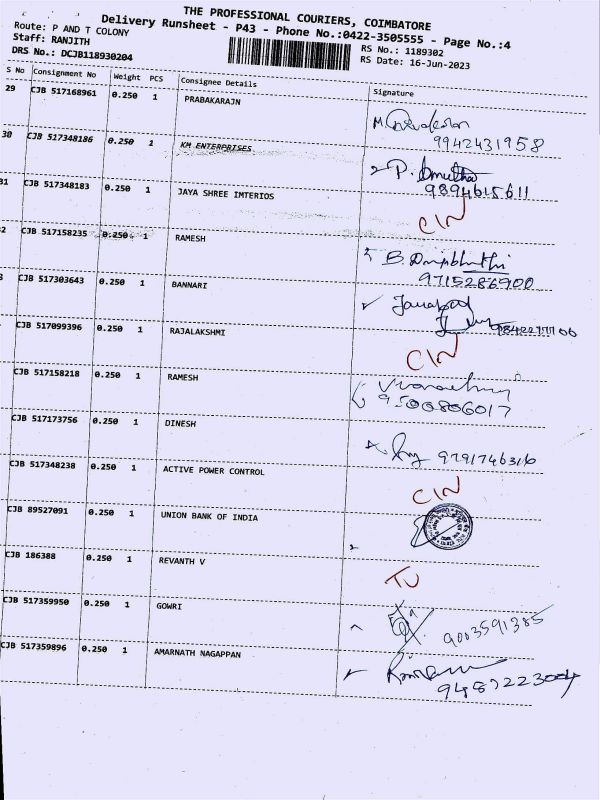 THE PROFESSIONAL COURIERS, COIMBATORE
Delivery Runsheet - P43 - Phone No.:0422-3505555 - Page No.:4
Route: P AND T COLONY
Staff: RANJITH
DRS No.: DCJB118930204
RS No.: 1189302
RS Date: 16-Jun-2023
S No Consignment No Weight PCS Consignee Details Signature
29 CJB 517168961 0.250 1 PRABAKARAJN
9942431958
30 CJB 517348186 0.250 1 KM ENTERPRISES
9894615611
31 CJB 517348183 0.250 1 JAYA SHREE IMTERIOS CIN
2 CJB 517158235 0.250 1 RAMESH
9715286900
CJB 517303643 0.250 1 BANNARI
CJB 517099396 0.250 1 RAJALAKSHMI CIN
CJB 517158218 0.250 1 RAMESH
9500806017
CJB 517173756 0.250 1 DINESH 9791746316
CJB 517348238 0.250 1 ACTIVE POWER CONTROL CIN
CJB 89527091 0.250 1 UNION BANK OF INDIA
CJB 186388 0.250 1 REVANTH V
CJB 517359950 0.250 1 GOWRI 9003591385
CJB 517359896 0.250 1 AMARNATH NAGAPPAN
9487223004